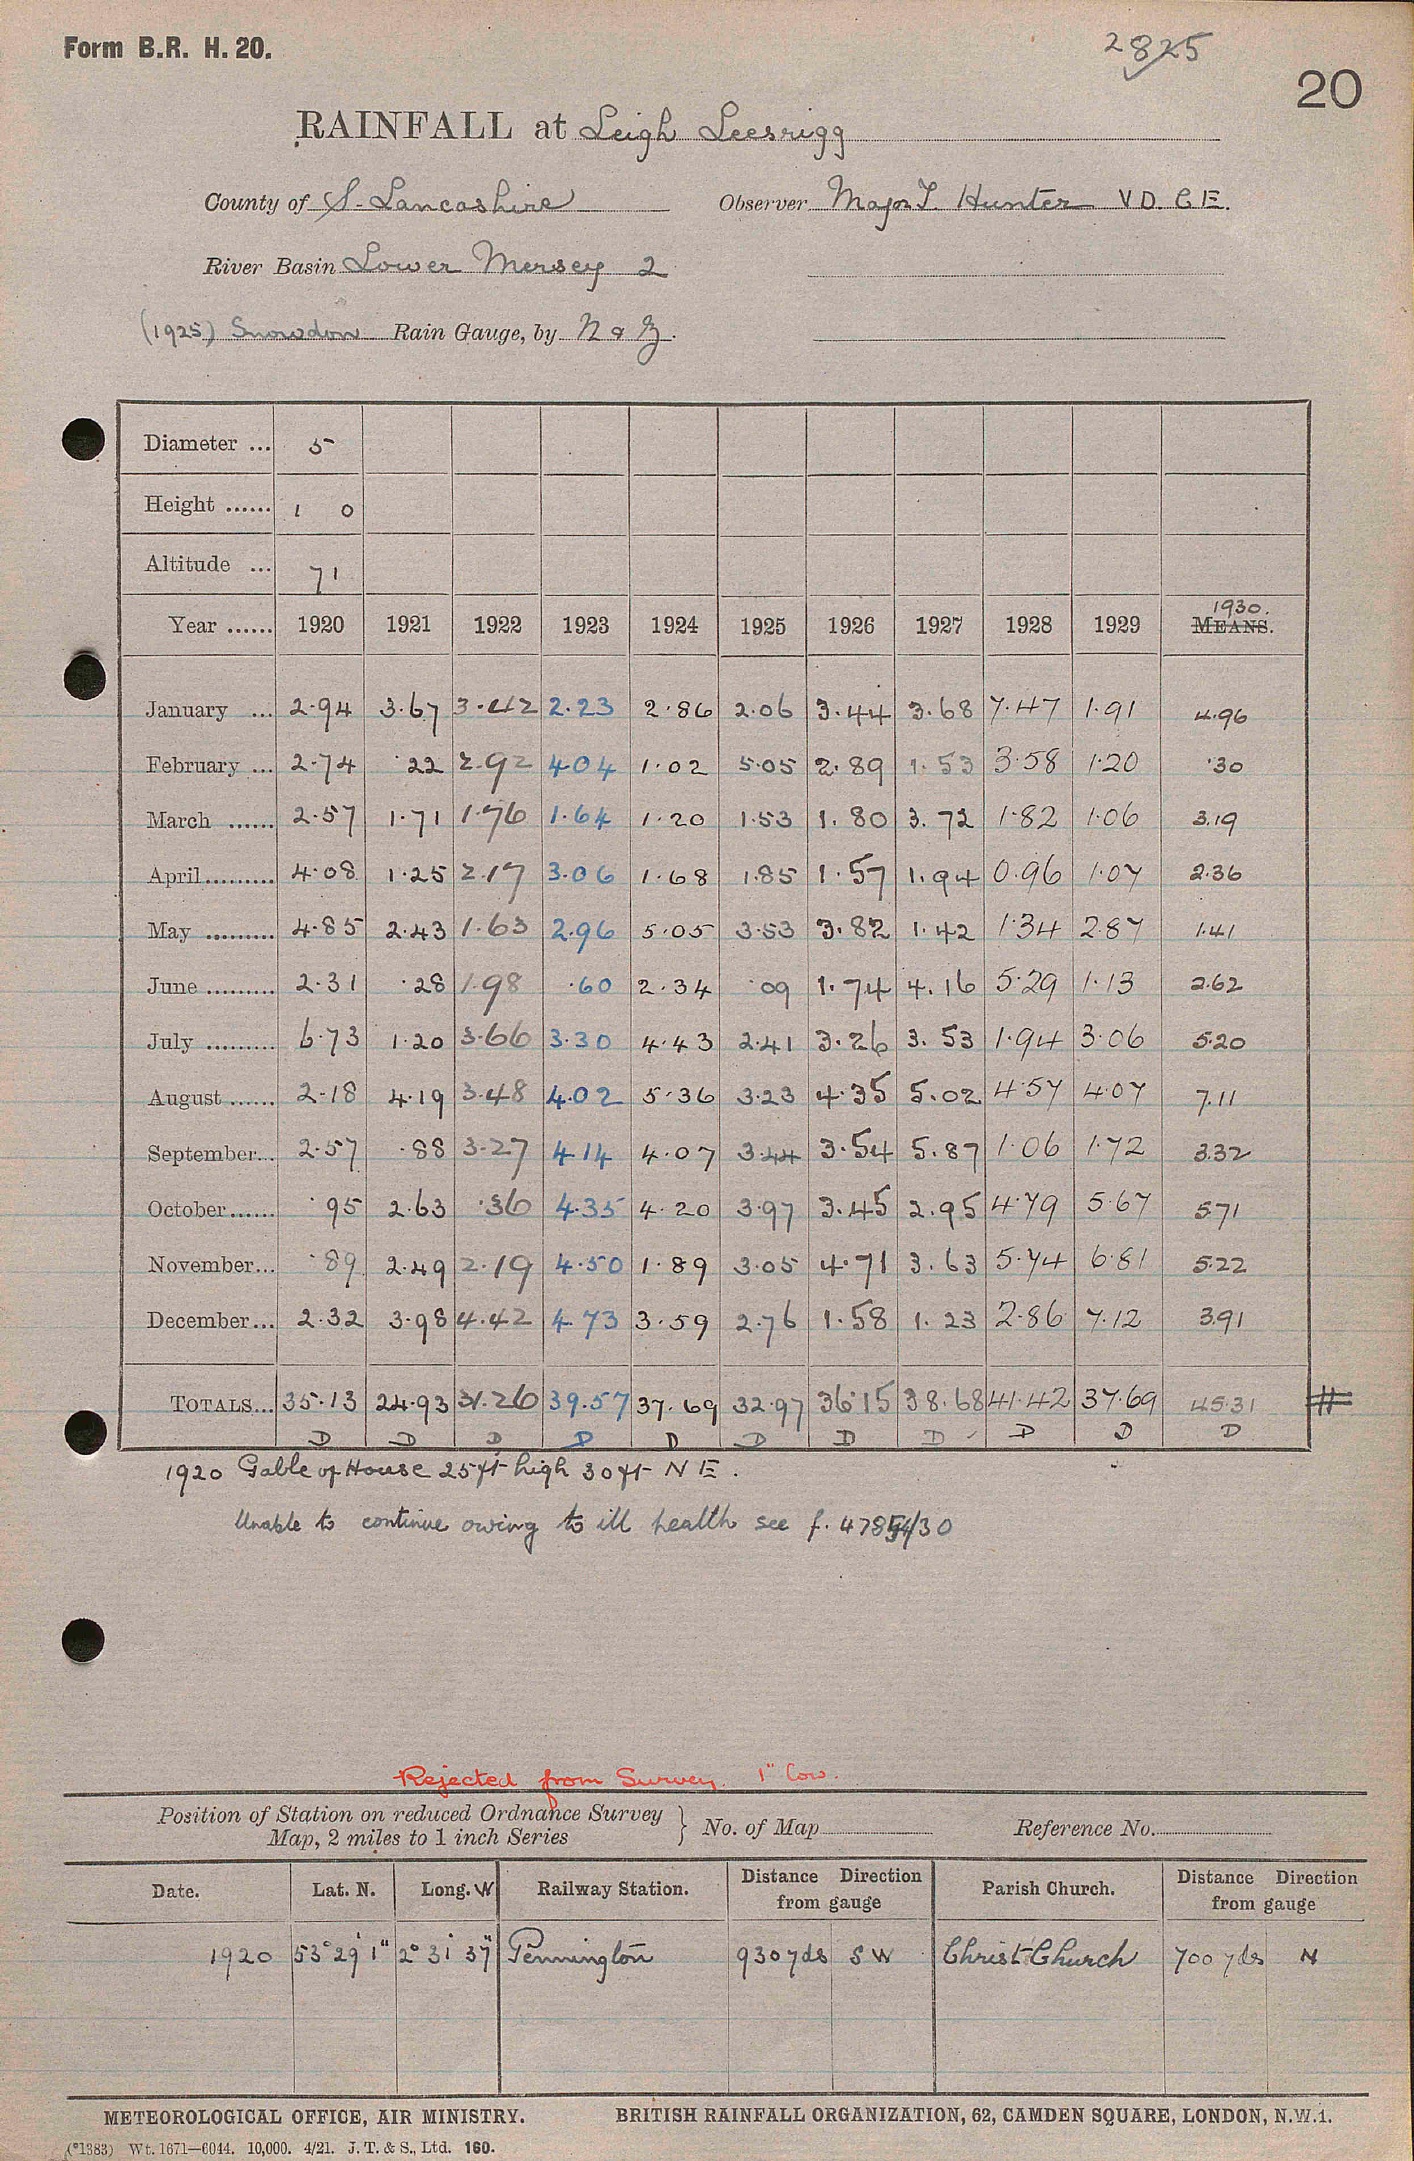 Form B.R. H. 20.
2825
20
RAINFALL at Leigh Leesrigg
County of S. Lancashire Observer Major T. Hunter V D. C E.
River Basin Lower Mersey 2
(1925) Snowdon Rain Gauge, by N & Z.
Diameter ... 5
Height ...... 1 0
Altitude ... 71
Year ...... 1920 1921 1922 1923 1924 1925 1926 1927 1928 1929 1930. MEANS.
January ... 2.94 3.67 3.42 2.23 2.86 2.06 3.44 3.68 7.47 1.91 4.96
February ... 2.74 .22 2.92 4.04 1.02 5.05 2.89 1.53 3.58 1.20 .30
March ...... 2.57 1.71 1.76 1.64 1.20 1.53 1.80 3.72 1.82 1.06 3.19
April ......... 4.08 1.25 2.17 3.06 1.68 1.85 1.57 1.94 0.96 1.07 2.36
May ......... 4.85 2.43 1.63 2.96 5.05 3.53 3.82 1.42 1.34 2.87 1.41
June ......... 2.31 .28 1.98 .60 2.34 .09 1.74 4.16 5.29 1.13 2.62
July ......... 6.73 1.20 3.66 3.30 4.43 2.41 3.26 3.53 1.94 3.06 5.20
August ...... 2.18 4.19 3.48 4.02 5.36 3.23 4.35 5.02 4.57 4.07 7.11
September... 2.57 .88 3.27 4.14 4.07 3.44 3.54 5.87 1.06 1.72 3.32
October ...... .95 2.63 .36 4.35 4.20 3.97 3.45 2.95 4.79 5.67 5.71
November... .89 2.49 2.19 4.50 1.89 3.05 4.71 3.63 5.74 6.81 5.22
December... 2.32 3.98 4.42 4.73 3.59 2.76 1.58 1.23 2.86 7.12 3.91
TOTALS... 35.13 24.93 31.26 39.57 37.69 32.97 36.15 38.68 41.42 37.69 45.31 #
D D D D D D D D D D D
1920 Gable of House 25 ft high 30 ft N E.
Unable to continue owing to ill health see f.
Rejected from Survey. 1" low.
Position of Station on reduced Ordnance Survey
Map, 2 miles to 1 inch Series } No. of Map Reference No.
Date. Lat. N. Long. W Railway Station. Distance Direction from gauge Parish Church. Distance Direction from gauge
1920 53° 29' 1" 2° 31' 37" Pennington 930 yds S W Christ Church 700 yds N
METEOROLOGICAL OFFICE, AIR MINISTRY. BRITISH RAINFALL ORGANIZATION, 62, CAMDEN SQUARE, LONDON, N.W.1.
(*1383) Wt. 1671—6044. 10,000. 4/21. J. T. & S., Ltd. 160.